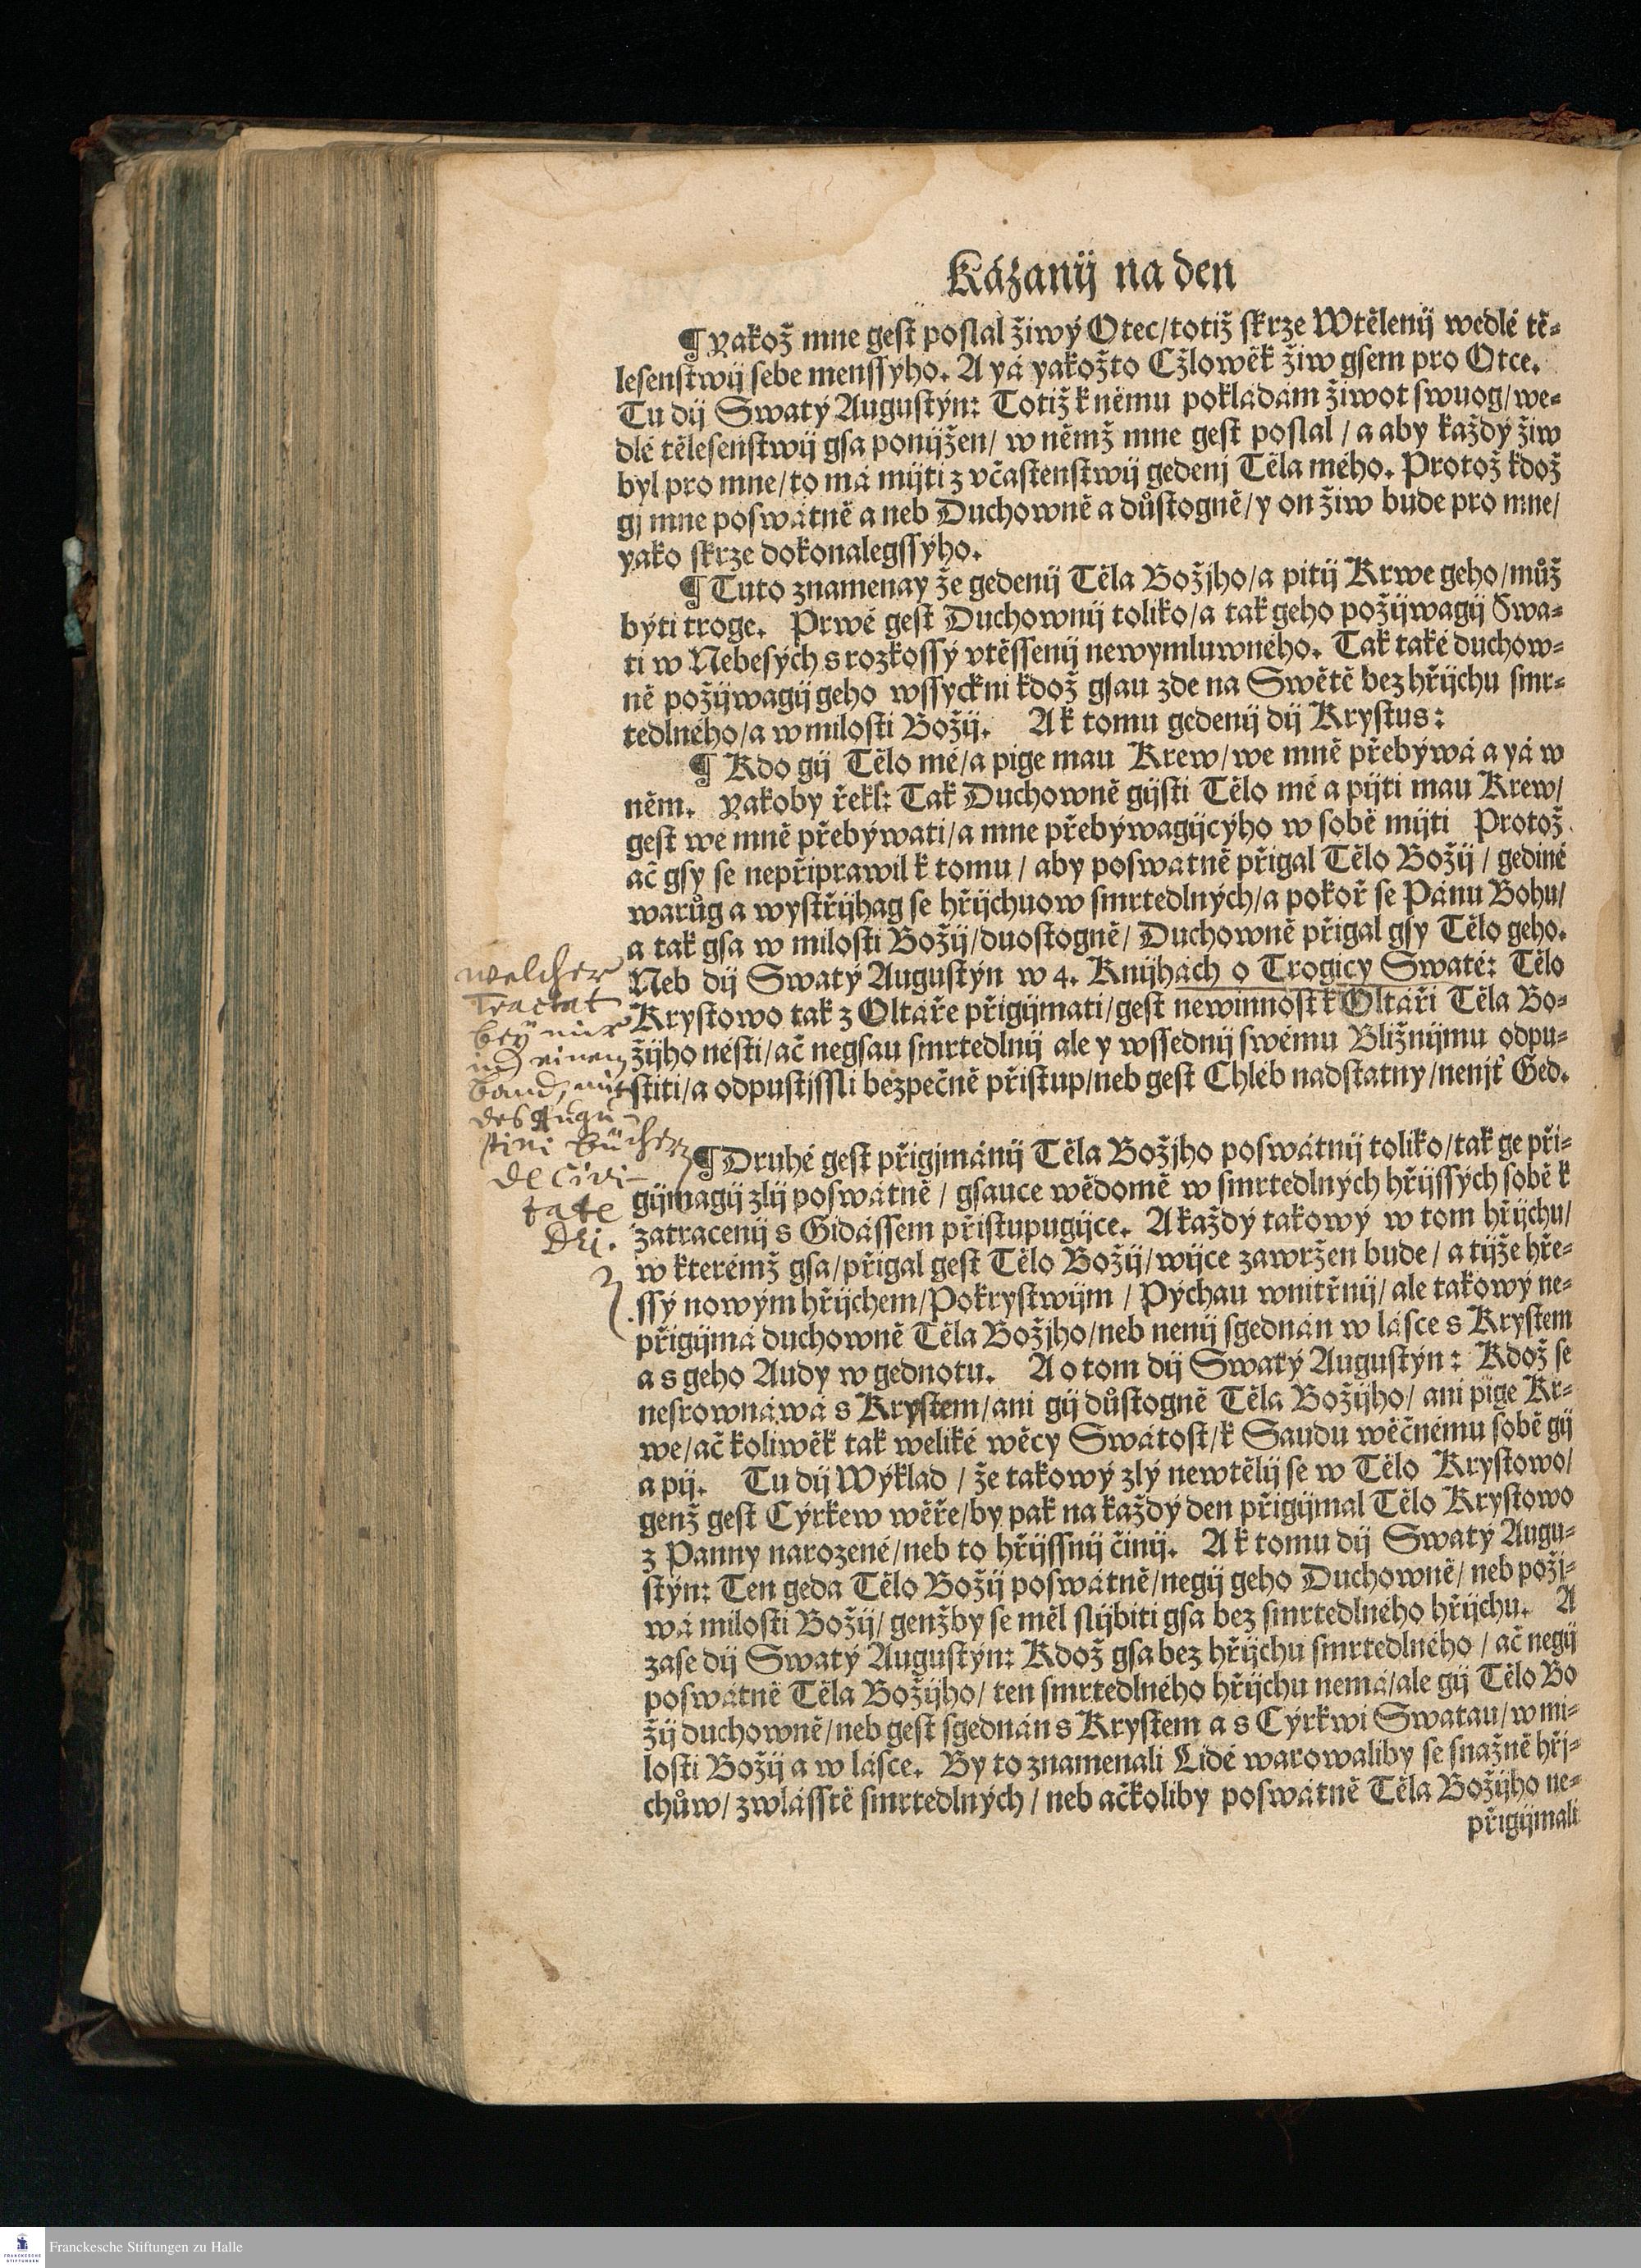 Kázanij na den
¶ Yakož mne gest poslal žiwý Otec/totiž skrze Wtělenij wedlé tě=
lesenstwij sebe menssyho. A yá yakožto Cžlowěk žiw gsem pro Otce.
Tu dij Swatý Augustýn: Totiž k němu pokládám žiwot swuog/we=
dlé tělesenstwij gsa ponijžen/ w němž mne gest poslal / a aby každý žiw
byl pro mne/to má mijti z včastenstwij gedenj Těla mého. Protož kdož
gj mne poswátně a neb Duchowně a důstogně/y on žiw bude pro mne/
yako skrze dokonalegssýho.
¶ Tuto znamenay že gedenij Těla Božjho/a pitij Krwe geho/můž
býti troge. Prwé gest Duchownij toliko/a tak geho požijwagij Swa=
ti w Nebesých s rozkossý vtěssenij newymluwného. Tak také duchow=
ně požijwagij geho wssyckni kdož gsau zde na Swětě bez hřijchu smr=
tedlného/a w milosti Božij. A k tomu gedenij dij Krystus:
¶ Kdo gij Tělo mé/a pige mau Krew/we mně přebýwá a yá w
něm. Yakoby řekl: Tak Duchowně gijsti Tělo mé a pijti mau Krew/
gest we mně přebýwati/a mne přebýwagijcýho w sobě mijti Protož
ač gsy se nepřiprawil k tomu / aby poswatně přigal Tělo Božij / gediné
warůg a wystřijhag se hřijchuow smrtedlných/a pokoř se Pánu Bohu/
a tak gsa w milosti Božij/duostogně/ Duchowně přigal gsy Tělo geho.
Neb dij Swatý Augustýn w 4. Knijhách o Trogicy Swaté: Tělo
Krystowo tak z Oltáře přigijmati/gest newinnost k Oltáři Těla Bo=
žijho nésti/ač negsau smrtedlnij ale y wssednij swému Bližnijmu odpu=
stiti/a odpustjssli bezpečně přistup/neb gest Chléb nadstatny/nenjť Ged.
welcher
Tractat
bey mir
in einem
band, mit
des Augu-
stini Bücher
de civi-
tate
Dei.
¶ Druhé gest přigjmánij Těla Božjho poswátnij toliko/tak ge při=
gijmagij zlij poswátně / gsauce wědomě w smrtedlných hřijssých sobě k
zatracenij s Gidássem přistupugijce. A každý takowý w tom hřijchu/
w kterémž gsa/přigal gest Tělo Božij/wijce zawržen bude / a tijže hře=
ssý nowým hřijchem/Pokrystwijm / Pýchau wnitřnij/ ale takowý ne=
přigijmá duchowně Těla Božjho/neb nenij sgednán w lásce s Krystem
a s geho Audy w gednotu. A o tom dij Swatý Augustýn: Kdož se
nesrownáwá s Krystem/ani gij důstogně Těla Božijho/ ani pige Kr=
we/ač koliwěk tak weliké wěcy Swátost/k Saudu wěčnému sobě gij
a pij. Tu dij Wýklad / že takowý zlý newtělij se w Tělo Krystowo/
genž gest Cýrkew wěře/by pak na každý den přigijmal Tělo Krystowo
z Panny narozené/neb to hřijssnij činij. A k tomu dij Swatý Augu=
stýn: Ten gedá Tělo Božij poswátně/negij geho Duchowně/ neb požj=
wá milosti Božij/ genžby se měl slijbiti gsa bez smrtedlného hřijchu. A
zase dij Swatý Augustýn: Kdož gsa bez hřijchu smrtedlného / ač negij
poswátně Těla Božijho/ ten smrtedlného hřijchu nemá/ale gij Tělo Bo
žij duchowně/neb gest sgednán s Krystem a s Cýrkwi Swatau/w mi=
losti Božij a w lásce. By to znamenali Lidé warowaliby se snažně hřj=
chůw/ zwlásstě smrtedlných / neb ačkoliby poswátně Těla Božijho ne=
přigijmali
Franckesche Stiftungen zu Halle